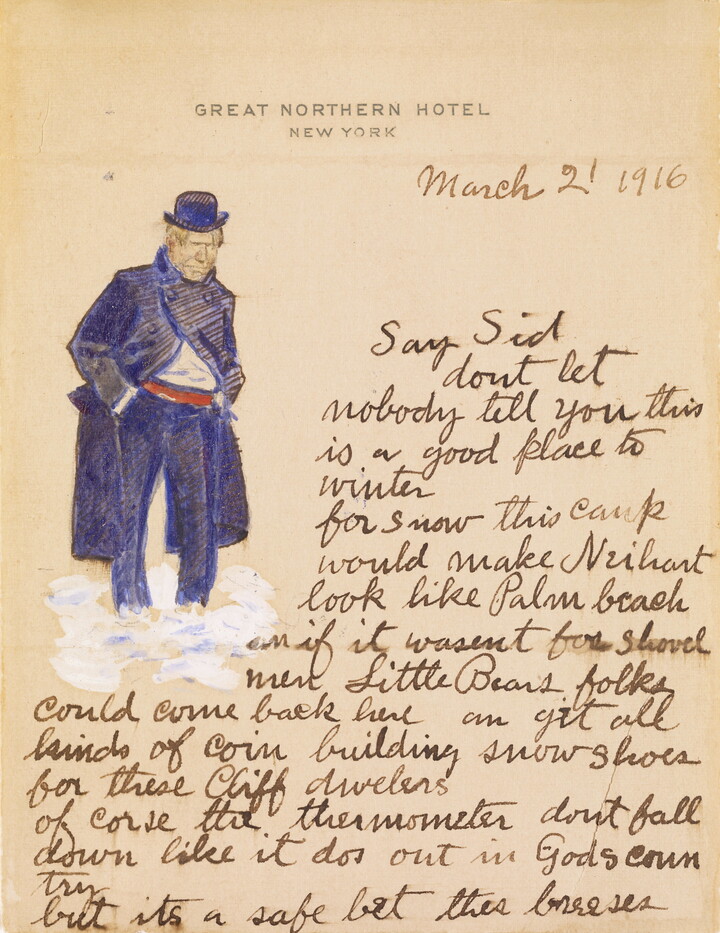 GREAT NORTHERN HOTEL
NEW YORK
March 2! 1916
Say Sid
dont let
nobody tell you this
is a good place to
winter
for snow this camp
would make Neihart
look like Palm beach
an if it wasent for shovel
men Little Bears folks
could come back here an git all
kinds of coin building snow shoes
for these Cliff dwelers
of corse the thermometer dont fall
down like it dos out in Gods coun
try
but its a safe bet thes breeses